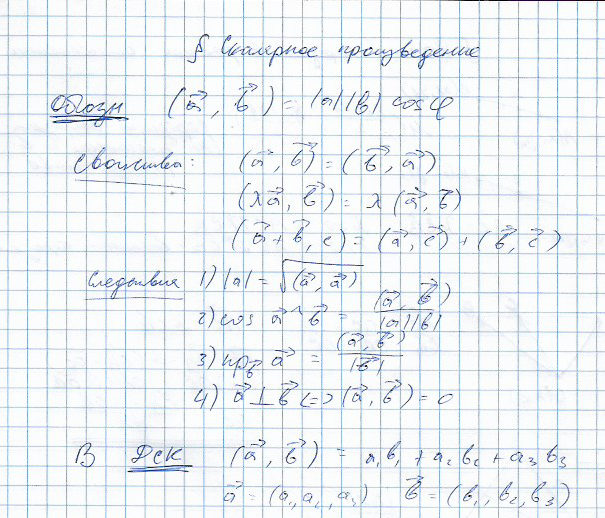 § Скалярное произведение
Обозн (a⃗, b⃗) = |a||b| cos φ
Свойства: (a⃗, b⃗) = (b⃗, a⃗)
(λa⃗, b⃗) = λ (a⃗, b⃗)
(a⃗ + b⃗, c) = (a⃗, c⃗) + (b⃗, c⃗)
Следствия 1) |a| = √(a⃗, a⃗)
2) cos a⃗ ^ b⃗ = (a⃗, b⃗) / |a||b|
3) пр_b⃗ a⃗ = (a⃗, b⃗) / |b⃗|
4) a⃗ ⊥ b⃗ <=> (a⃗, b⃗) = 0
В ДСК (a⃗, b⃗) = a₁b₁ + a₂b₂ + a₃b₃
a⃗ = (a₁, a₂, a₃) b⃗ = (b₁, b₂, b₃)